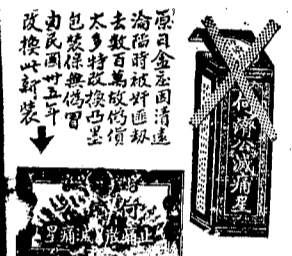 原目金庄因清遠
淪陷時被奸匪劫
去數百萬故偽價
太多特改換凸墨
包裝保無偽冒
由民國卅五年
改換此新裝
何濟公滅痛星
止痛散
滅痛星